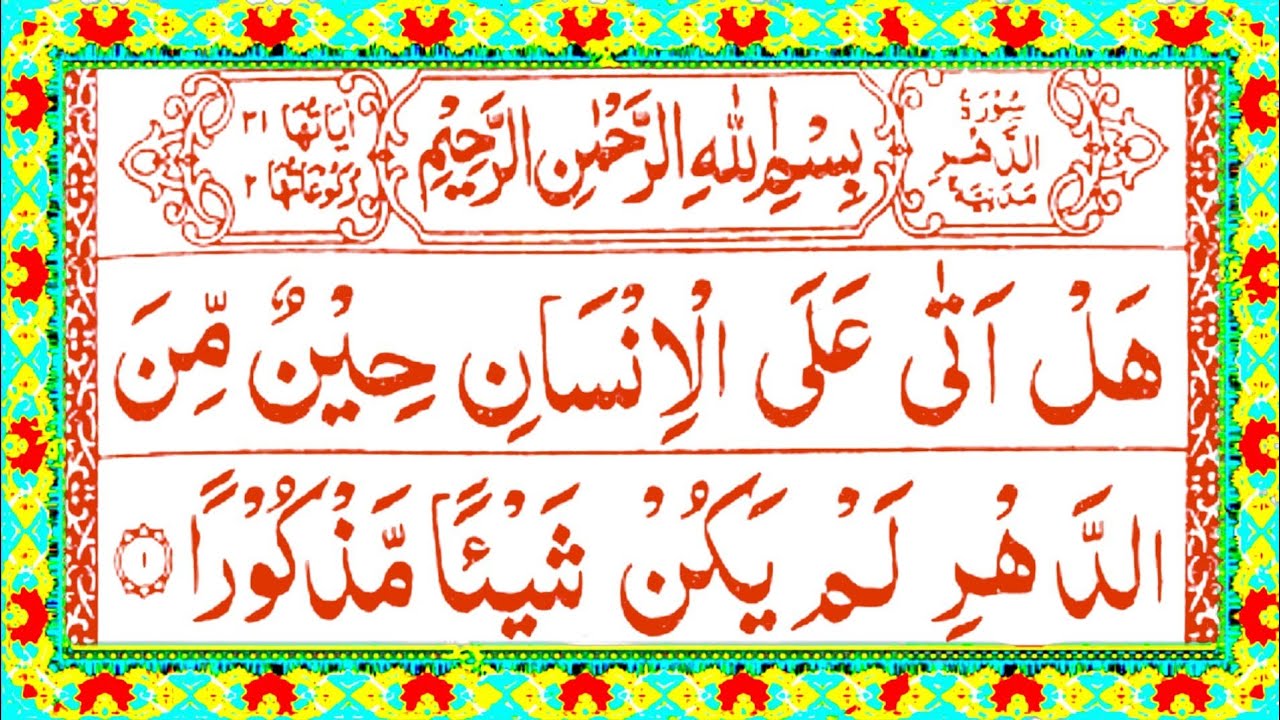 سُوْرَةُ
الدَّهْرِ
مَدَنِيَّةٌ
بِسْمِ اللّٰهِ الرَّحْمٰنِ الرَّحِيْمِ
اٰيَاتُهَا ٣١
رُكُوْعَاتُهَا ٢
هَلْ اَتٰى عَلَى الْاِنْسَانِ حِيْنٌ مِّنَ
الدَّهْرِ لَمْ يَكُنْ شَيْـًٔا مَّذْكُوْرًا ١